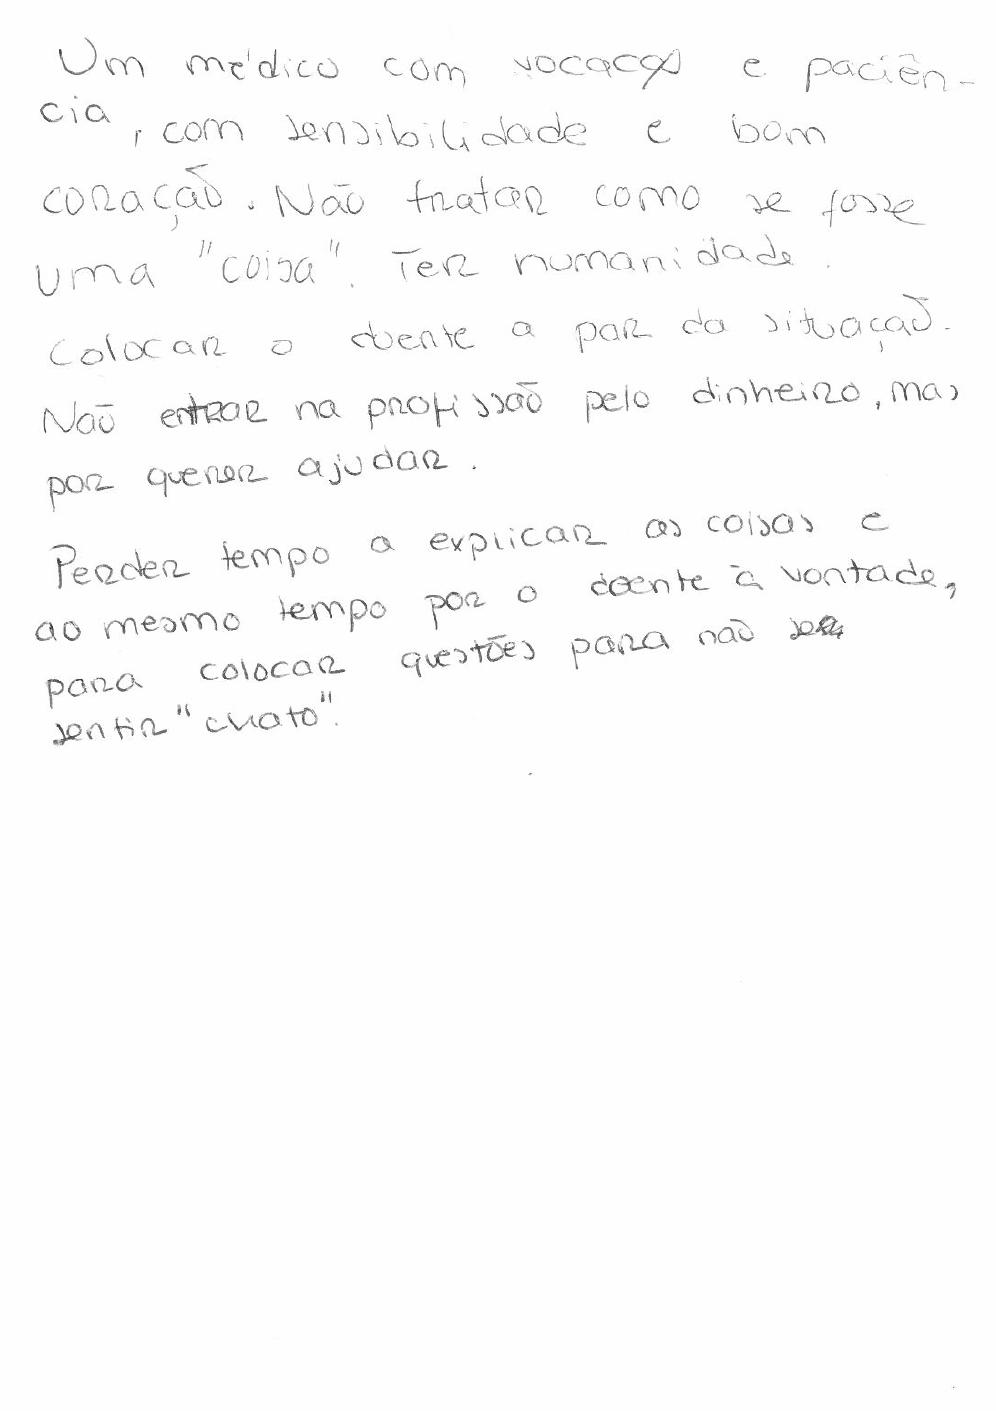 Um médico com vocação e paciên-
cia, com sensibilidade e bom
coração. Não tratar como se fosse
uma "coisa". Ter humanidade.
Colocar o doente a par da situação.
Não entrar na profissão pelo dinheiro, mas
por querer ajudar.
Perder tempo a explicar as coisas e
ao mesmo tempo por o doente à vontade,
para colocar questões para não
sentir "chato".